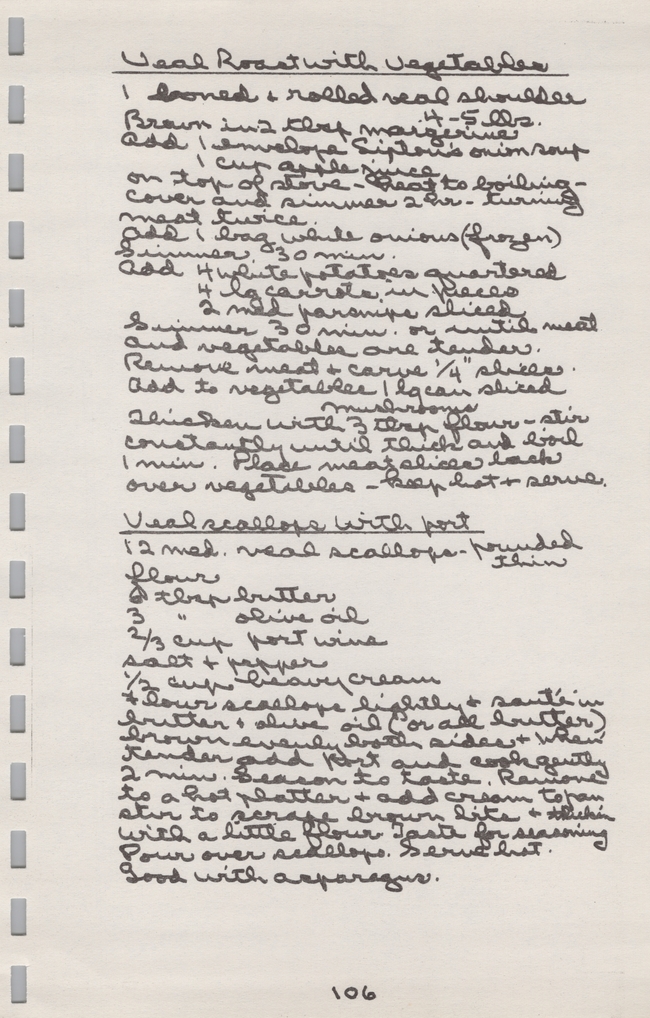 Veal Roast with Vegetables
1 boned + rolled veal shoulder
4-5 lbs.
Brown in 2 tbsp margerine
Add 1 envelope Lipton's onion soup
1 cup apple juice
on top of stove - heat to boiling -
cover and simmer 2 hr - turning
meat twice.
Add 1 bag white onions (frozen)
Simmer 30 min.
Add 4 white potatoes quartered
4 lg carrots in pieces
2 med parsnips sliced
Simmer 30 min. or until meat
and vegetables are tender.
Remove meat + carve 1/4" slices.
Add to vegetables 1 lg can sliced
mushrooms
Thicken with 3 tbsp flour - stir
constantly until thick and boil
1 min. Place meat slices back
over vegetables - keep hot + serve.
Veal scallops with port
12 med. veal scallops - pounded
thin
flour
tbsp butter
3 " olive oil
2/3 cup port wine
salt + pepper
1/2 cup heavy cream
Flour scallops lightly + sauté in
butter + olive oil (or all butter)
brown evenly both sides + when
tender add port and cook gently
2 min. Season to taste. Remove
to a hot platter + add cream to pan
stir to scrape brown bits + thicken
with a little flour Taste for seasoning
Pour over scallops. Serve hot.
Good with asparagus.
106